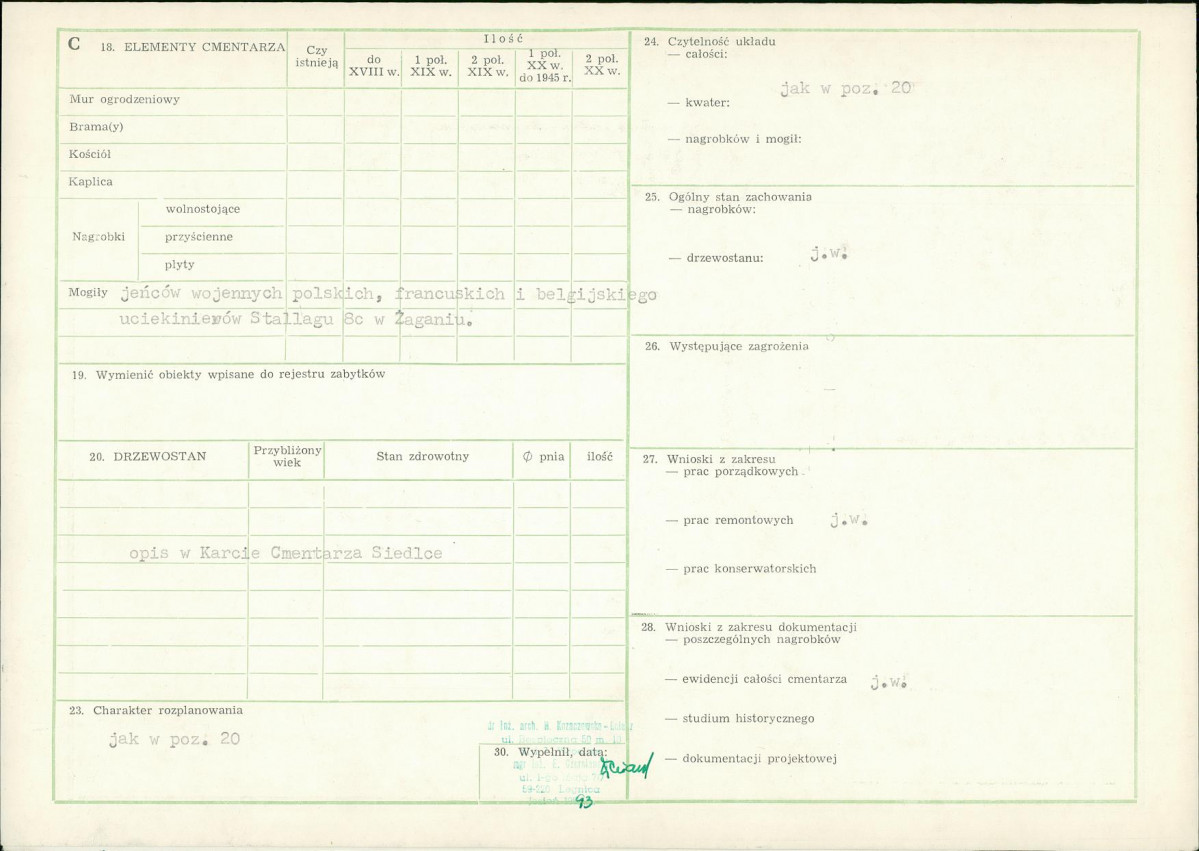 C 18. ELEMENTY CMENTARZA
Czy istnieją
Ilość
do XVIII w.
1 poł. XIX w.
2 poł. XIX w.
1 poł. XX w. do 1945 r.
2 poł. XX w.
Mur ogrodzeniowy
Brama(y)
Kościół
Kaplica
Nagrobki
wolnostojące
przyścienne
płyty
Mogiły jeńców wojennych polskich, francuskich i belgijskiego
uciekinierów Stallagu 8c w Żaganiu.
19. Wymienić obiekty wpisane do rejestru zabytków
20. DRZEWOSTAN
Przybliżony wiek
Stan zdrowotny
Ø pnia
ilość
opis w Karcie Cmentarza Siedlce
23. Charakter rozplanowania
jak w poz. 20
24. Czytelność układu
— całości:
jak w poz. 20
— kwater:
— nagrobków i mogił:
25. Ogólny stan zachowania
— nagrobków:
— drzewostanu: j.w.
26. Występujące zagrożenia
—
27. Wnioski z zakresu
— prac porządkowych
— prac remontowych j.w.
— prac konserwatorskich
28. Wnioski z zakresu dokumentacji
— poszczególnych nagrobków
— ewidencji całości cmentarza j.w.
— studium historycznego
— dokumentacji projektowej
30. Wypełnił, data:
59-220 Legnica
93